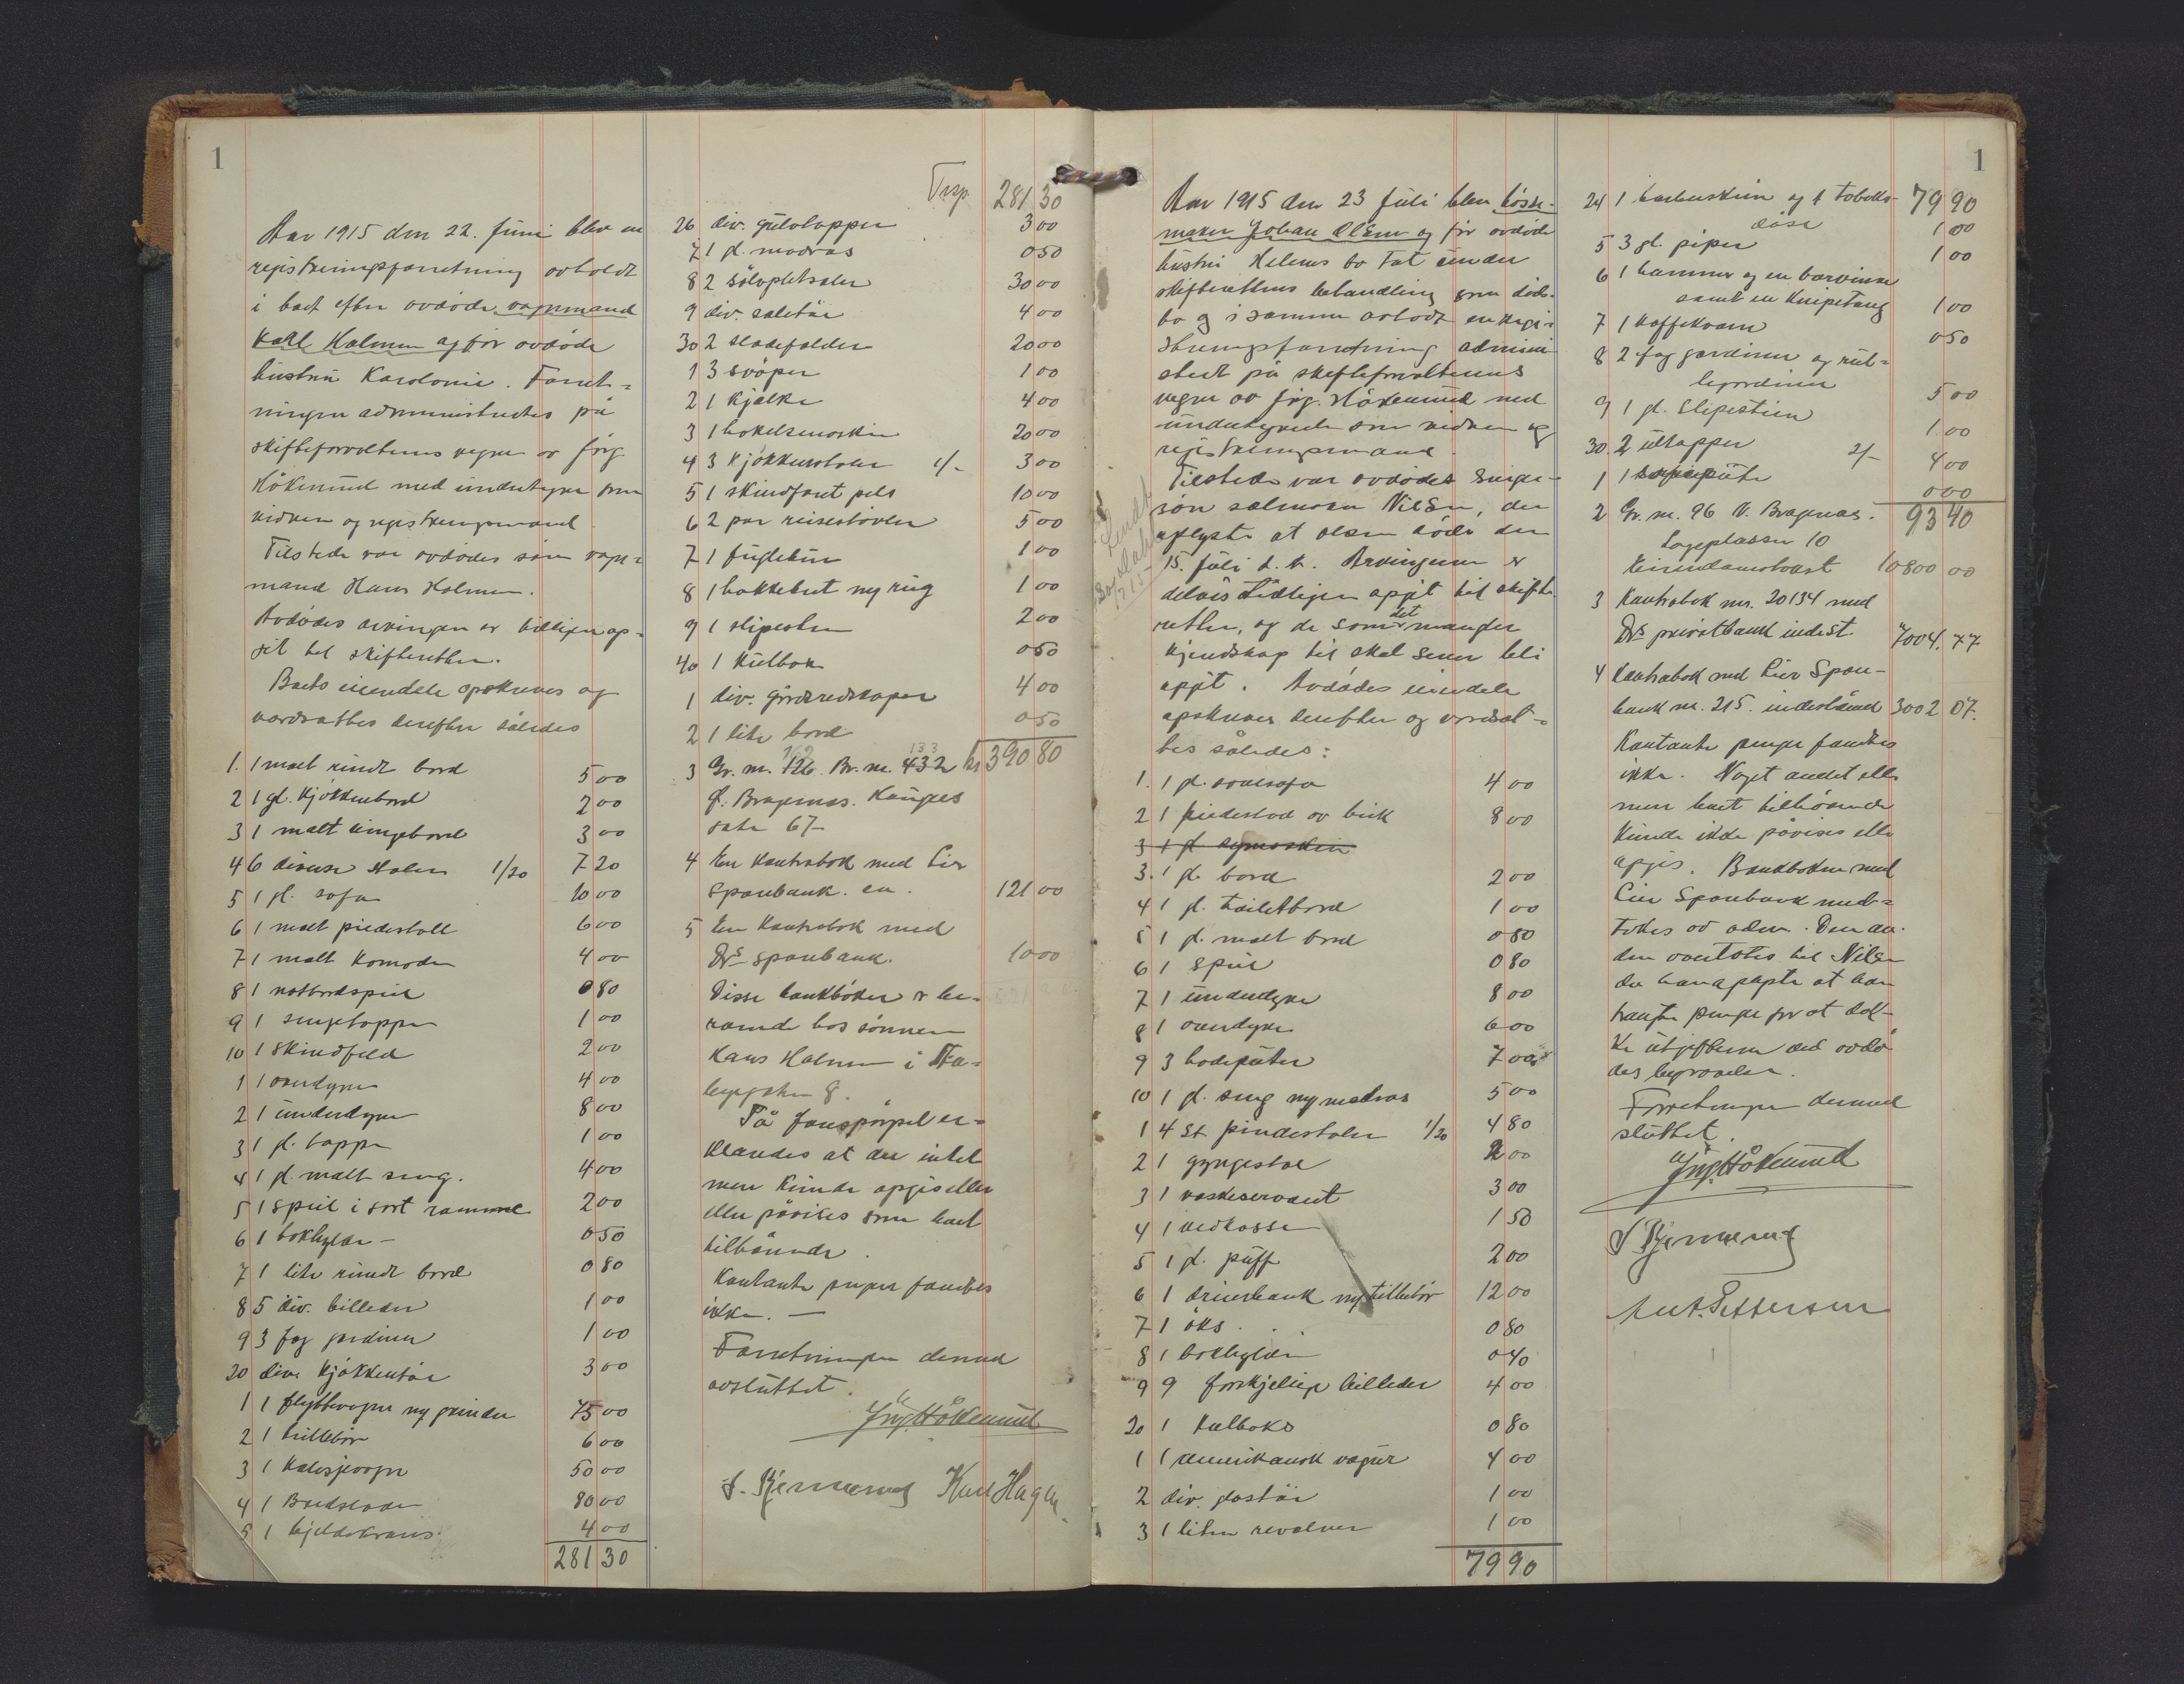 1
Aar 1915 den 22. Juni blev en
registreringsforretning avholdt
i boet efter avdøde vognmand
Karl Holmen og før avdøde
hustru Karolonie. Forret-
ningen administrertes på
skifteforvalterens vegne av Jørg.
Håkenrud med undertegn som
vidner og registreringsmænd.
Tilstede var avdødes søn vogn-
mand Hans Holmen.
Avdødes arvinger er tidligere op-
git til skifteretten.
Boets eiendele opskreves og
værdsattes derefter således
1. 1 malt rundt bord 5 00
2 1 gl. kjøkkenbord 2 00
3 1 malt slingebord 3 00
4 6 diverse stoler 1/20 7 20
5 1 gl. sofa 10 00
6 1 malt piedestall 6 00
7 1 malt komode 4 00
8 1 natbordspeil 0 80
9 1 sengetæppe 1 00
10 1 skindfeld 2 00
1 1 overdyne 4 00
2 1 underdyne 8 00
3 1 gl. tæppe 1 00
4 1 gl. malt seng. 4 00
5 1 speil i sort ramme 2 00
6 1 bokhylde - 0 50
7 1 lite rundt bord 0 80
8 5 div. billeder 1 00
9 3 fag gardiner 1 00
20 div. kjøkkentøi 3 00
1 1 flyttevogn m/ grinder 75 00
2 1 trillebør 6 00
3 1 kalesjevogn 50 00
4 1 Bredslæde 80 00
5 1 bjeldekrans. 4 00
281 30
Trsp. 281 30
26 div. gulvtæpper 3 00
7 1 gl. madras 0 50
8 2 sølvpletseler 30 00
9 div. seletøi 4 00
30 2 sledefelder 20 00
1 3 svøper 1 00
2 1 kjælke 4 00
3 1 hakelsmaskin 20 00
4 3 kjøkkenstoler 1/- 3 00
5 1 skindforet pels 10 00
6 2 par reisestøvler 5 00
7 1 fuglebur 1 00
8 1 hakkebret 1 00
9 1 slipesten 2 00
40 1 kulboks 0 50
1 div. gårdsredskaper 4 00
2 1 lite bord 0 50
162 133
3 Gr. nr. 126. Br. nr. 432 kr 390 80
Ø. Bragernes. Kongens
gate 67-
4 En kontrabok med Lier
sparebank. ca. 121 00
5 En kontrabok med
Drs sparebank. 10 00
Disse bankbøker er be-
roende hos sønnen
Hans Holmen i
8.
På foresporgsel er-
klærdes at der intet
mere kunde opgis eller
eller påvises som boet
tilhørende.
Kontante penger fandtes
ikke. -
Forretningen dermed
avsluttet.
Jørg. Håkenrud
Karl Hagen
1
Aar 1915 den 23 Juli blev bøsse-
maker Johan Olsen og før avdøde
hustru Helenes bo tat under
skifterettens behandling som døds-
bo og i samme avholdt en regi-
streringsforretning admini-
stert på skifteforvalterens
vegne av Jørg. Håkenrud med
undertegnede som vidner og
registreringsmænd.
Tilstede var avdødes sviger-
søn Nilsen, der
oplyste at Olsen døde den
15. juli d. å. Arvingerne er
delvis tidligere opgit til skifte-
retten, og de som det mangler
kjendskap til skal senere bli
opgit. Avdødes eiendele
opskreves derefter og værdsat-
tes således:
1. 1 gl. sovesofa 4 00
2 1 piedestal av birk 8 00
3 1 gl. symaskin
3. 1 gl. bord 2 00
4 1 gl. toiletbord 1 00
5 1 gl. malt bord 0 80
6 1 speil 0 80
7 1 underdyne 8 00
8 1 overdyne 6 00
9 3 hodeputer 7 00
10 1 gl. seng m/ madras 5 00
1 4 st pindestoler 1/20 4 80
2 1 gyngestol 2 00
3 1 vaskeservant 3 00
4 1 vedkasse 1 50
5 1 gl. puff 2 00
6 1 dreierbænk m/ tilbehør 12 00
7 1 øks. 0 80
8 1 bokhylde 0 40
9 9 forskjellige billeder 4 00
20 1 kulboks 0 80
1 1 amerikansk vægur 4 00
2 div. glastøi 1 00
3 1 liten revolver 1 00
79 90
1
79 90
24 1 barberskrin og 1 tobaks-
dåse 1 00
5 3 gl. piper 1 00
6 1 hammer og en borvinde
samt en knipetang 1 00
7 1 kaffekvern 0 50
8 2 fag gardiner og rul-
legardiner 5 00
9 1 gl. slipestein 1 00
30. 2 ultæpper 2/- 4 00
1 1 sofapute 0 00
2 Gr. nr. 96 N. Bragernes. 93 40
Lageplassen 10
Eiendomstakst 10800 00
3 Kontrabok nr. 20134 med
Drs privatbank indest. 7004.77
4 Kontrabok med Lier Spare-
bank nr. 215. indestående 3002 07.
Kontante penger fandtes
ikke. Noget andet eller
mere boet tilhørende
kunde ikke påvises eller
opgis. Bankboken med
Lier Sparebank med-
tokes av adm. Den an-
den overlates til Nilsen
da han oplyste at han
trængte penger for at dæk-
ke utgifterne ved avdø-
des begravelse.
Forretningen dermed
sluttet.
Jørg. Håkenrud
Ant. Pettersen